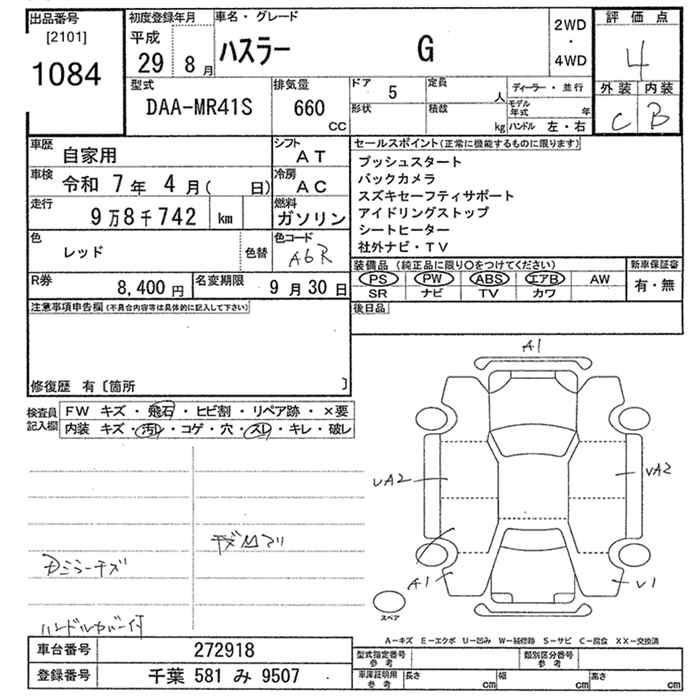 出品番号
[2101]
1084
初度登録年月
平成
29 8月
車名・グレード
ハスラー G
2WD
・
4WD
評価点
4
外装 内装
C B
型式
DAA-MR41S
排気量
660
CC
ドア
5
形状
定員
人
積載
kg
ディーラー・並行
モデル年式 年
ハンドル 左・右
車歴
自家用
シフト
AT
車検
令和 7年 4月( 日)
冷房
AC
走行
9万8千742 km
燃料
ガソリン
色
レッド
色替
色コード
A6R
R券
8,400円
名変期限
9月30日
セールスポイント(正常に機能するものに限ります)
プッシュスタート
バックカメラ
スズキセーフティサポート
アイドリングストップ
シートヒーター
社外ナビ・TV
装備品 (純正品に限り○をつけてください)
PS PW ABS エアB AW
SR ナビ TV カワ
新車保証書
有・無
後日品
注意事項申告欄(不具合内容等は具体的に記入して下さい)
修復歴 有〔箇所 〕
検査員記入欄
FW キズ・飛石・ヒビ割・リペア跡・×要
内装 キズ・汚レ・コゲ・穴・スレ・キレ・破レ
A1
UA2
UA2
A1
U1
スペア
ハンドルカバー付
A-キズ E-エクボ U-凹み W-補修跡 S-サビ C-腐食 XX-交換済
車台番号
272918
登録番号
千葉 581 み 9507
型式指定番号
参考
類別区分番号
参考
車庫証明用
参考
長さ cm
幅 cm
高さ cm